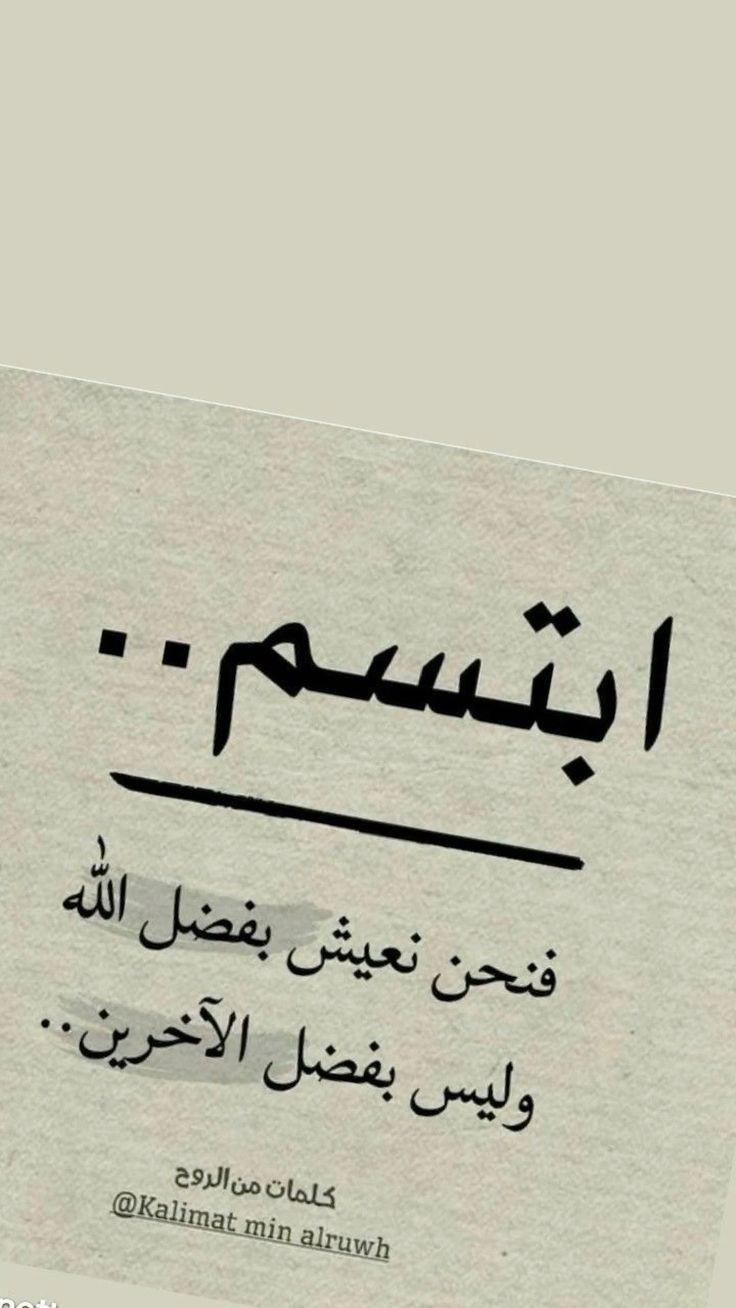 ابتسم..
فنحن نعيش بفضل الله
وليس بفضل الآخرين..
كلمات من الروح
@Kalimat min alruwh